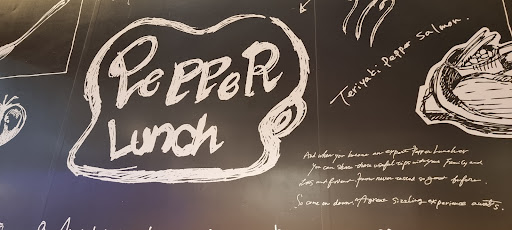 PEPPER
Lunch
Teriyaki Pepper Salmon.
And when you become an expert Pepper Luncher
You can share these useful tips with your Family and
never tasted so great before.
So come on down. A great sizzling experience awaits.